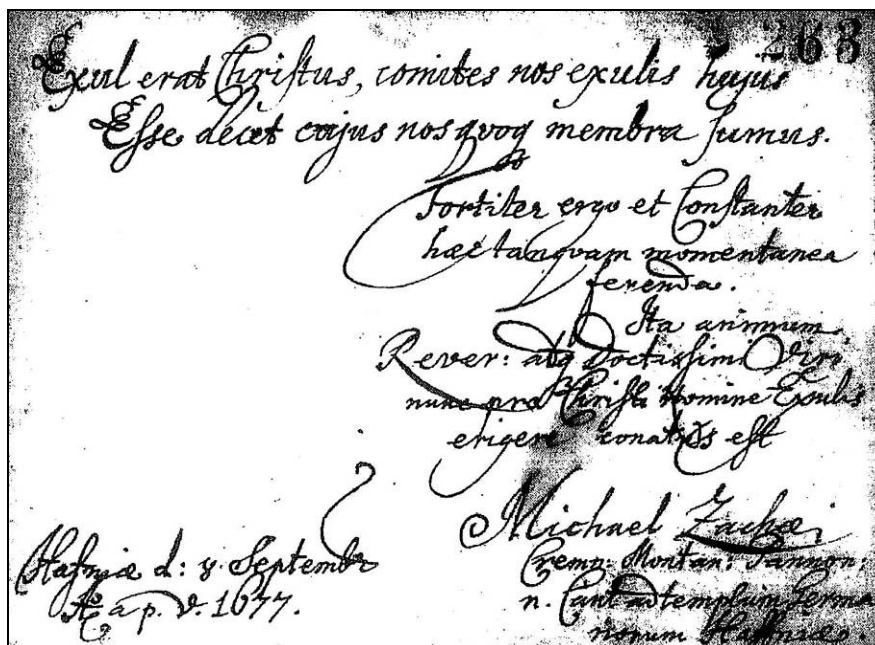 268
Exul erat Christus, comites nos exulis hujus
Esse decet cujus nos qvoq membra sumus.
Fortiter ergo et Constanter
haec tanqvam momentanea
ferenda.
Ita animum
Rever: atq Doctissimi Viri
nunc pro Christi Nomine Exulis
erigere conatus est
Michael Zachaei
Hafniae d: Septembr
Cremn: Montan: Pannon:
Ao a p. V. 1677.
n. Cant ad templum Germa
norum Haffniae.